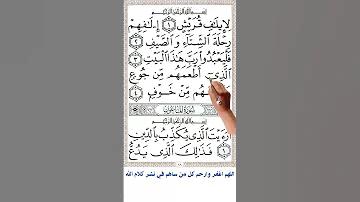 بِسْمِ ٱللَّهِ ٱلرَّحْمَٰنِ ٱلرَّحِيمِ
لِإِيلَٰفِ قُرَيْشٍ ١ إِۦلَٰفِهِمْ
رِحْلَةَ ٱلشِّتَآءِ وَٱلصَّيْفِ ٢
فَلْيَعْبُدُوا۟ رَبَّ هَٰذَا ٱلْبَيْتِ ٣
ٱلَّذِىٓ أَطْعَمَهُم مِّن جُوعٍ
مِّنْ خَوْفٍۭ ٤
سُورَةُ المَاعُونِ
بِسْمِ ٱللَّهِ ٱلرَّحْمَٰنِ ٱلرَّحِيمِ
أَرَءَيْتَ ٱلَّذِى يُكَذِّبُ بِٱلدِّينِ
١ فَذَٰلِكَ ٱلَّذِى يَدُعُّ
اللهم اغفر وارحم كل من ساهم في نشر كلام الله